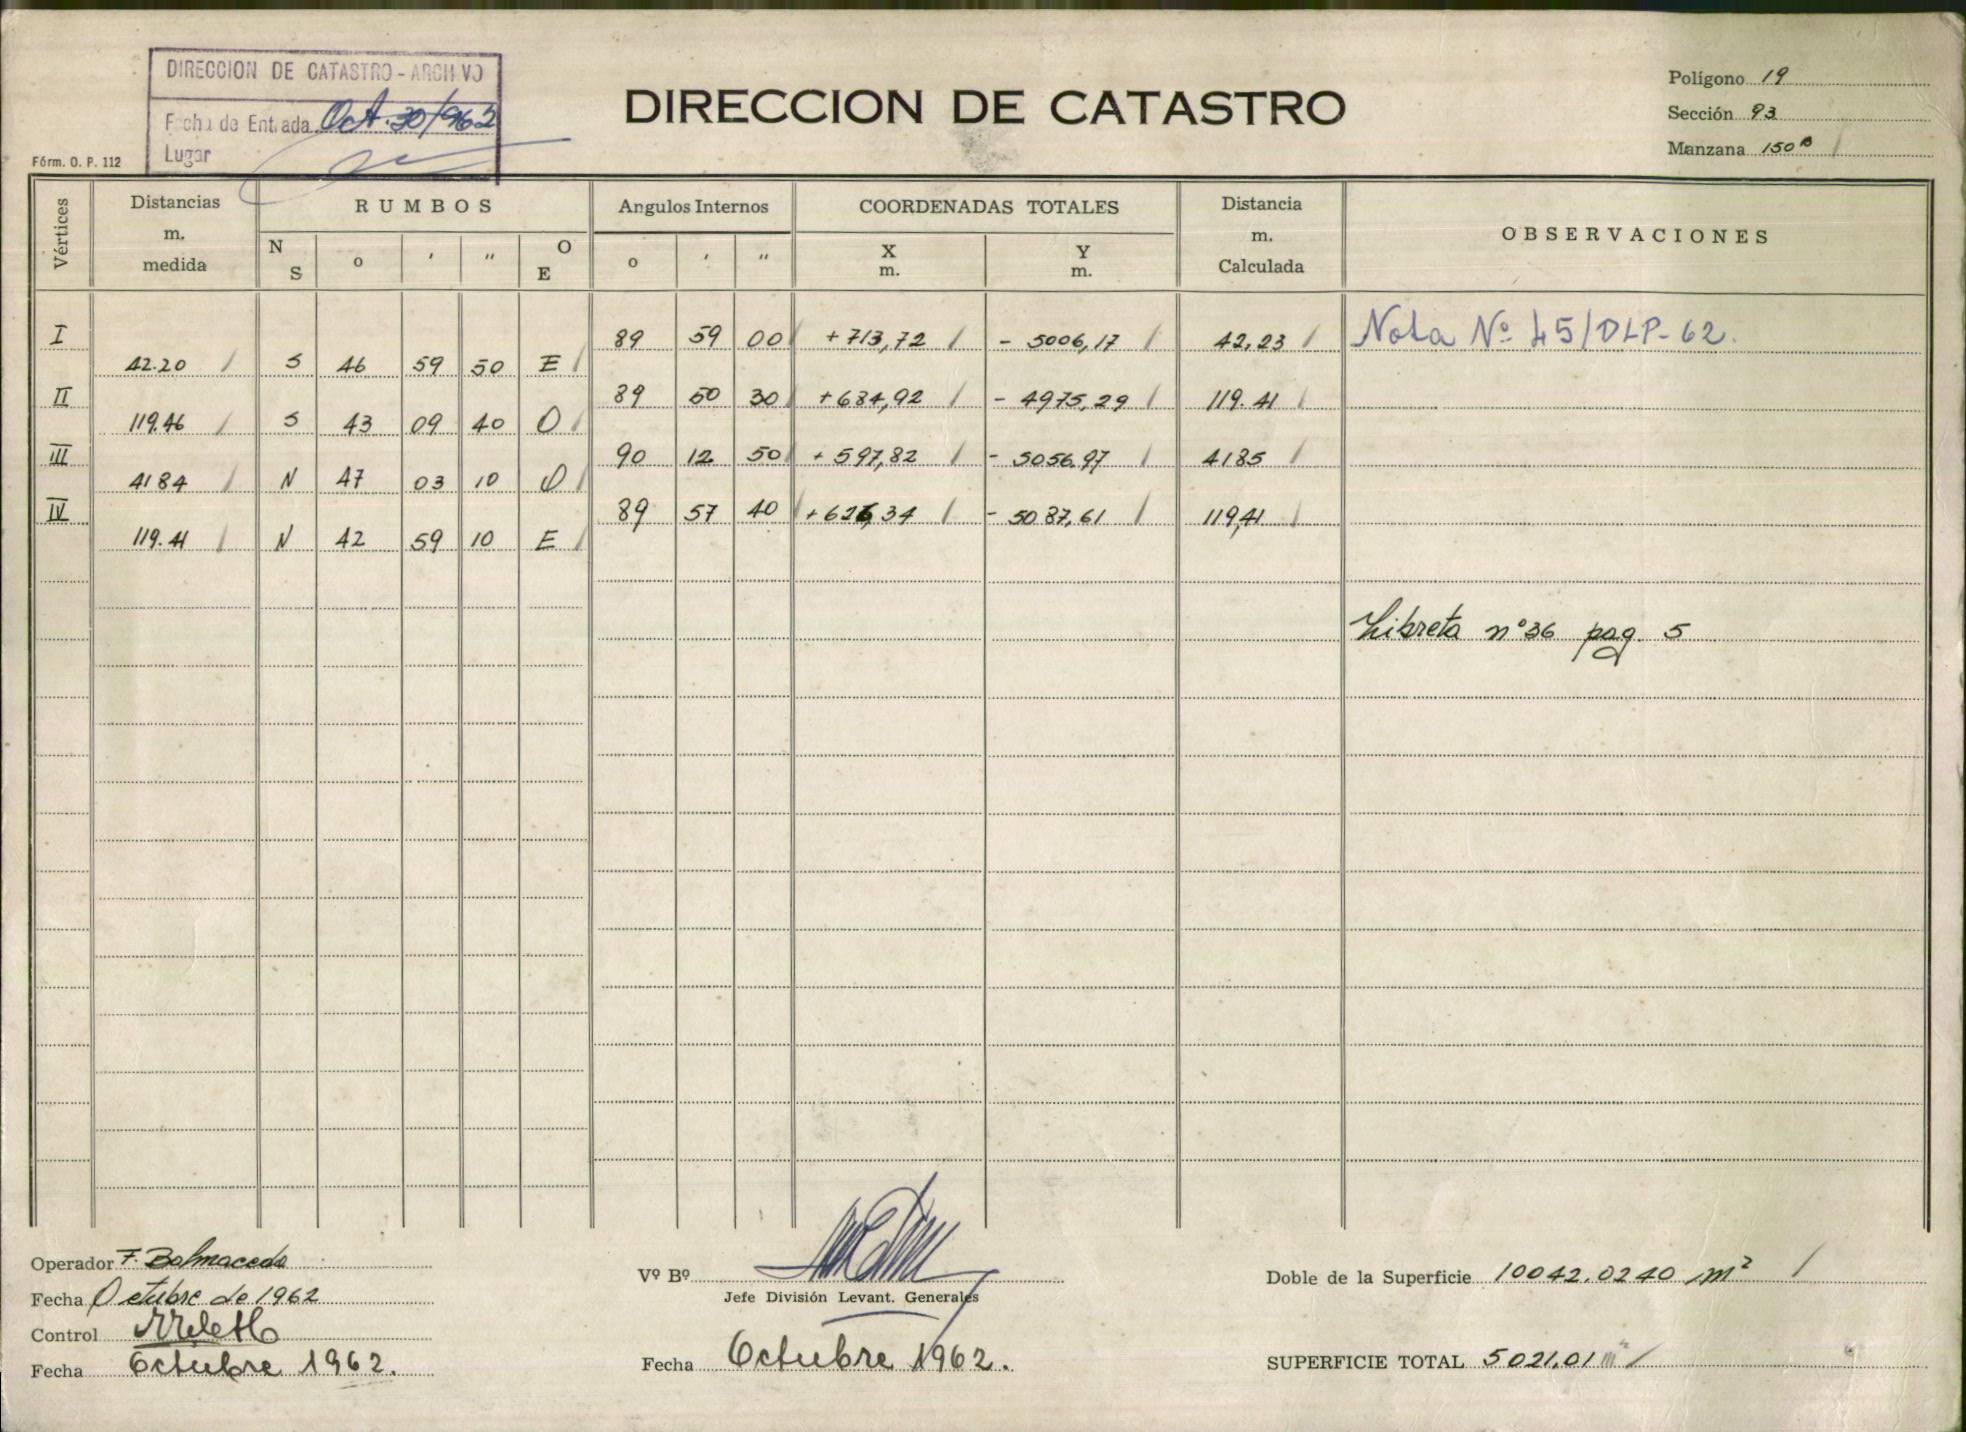 DIRECCION DE CATASTRO - ARCHIVO
Fecha de Entrada Oct. 30/962
Lugar
Fórm. O. P. 112
DIRECCION DE CATASTRO
Polígono 19
Sección 93
Manzana 150 B
Vértices
Distancias m. medida
RUMBOS
N S ° ' " O E
Angulos Internos
° ' "
COORDENADAS TOTALES
X m. Y m.
Distancia m. Calculada
OBSERVACIONES
I 89 59 00 +713,72 - 5006,17 42,23 Nota Nº 45/DLP-62.
42.20 S 46 59 50 E
II 89 50 30 +684,92 - 4975,29 119.41
119.46 S 43 09 40 O
III 90 12 50 +597,82 - 5056.97 4185
4184 N 47 03 10 O
IV 89 57 40 +626,34 - 5087,61 119,41
119.41 N 42 59 10 E
Libreta nº36 pag. 5
Operador F. Balmaceda
Fecha Octubre de 1962
Control
Fecha Octubre 1962.
Vº Bº
Jefe División Levant. Generales
Fecha Octubre 1962.
Doble de la Superficie 10042.0240 m²
SUPERFICIE TOTAL 5021,01 m²